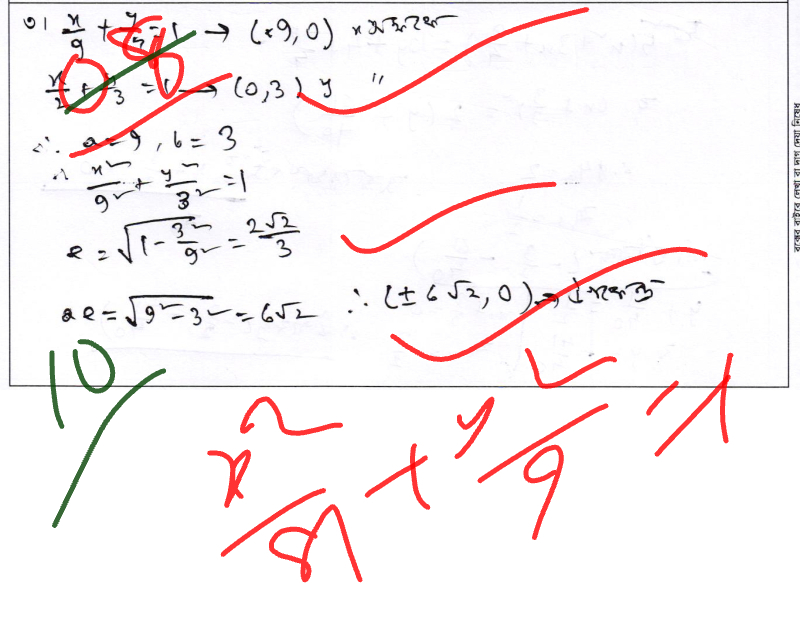 ৩। x/9 + y/ = 1 → (+9, 0) x অক্ষকে
x/2 + y/3 = 1 → (0, 3) y "
∴ a = 9, b = 3
∴ x²/9² + y²/3² = 1
e = √(1 - 3²/9²) = 2√2/3
ae = √(9² - 3²) = 6√2 ∴ (± 6√2, 0) →
10
x²/81 + y²/9 = 1
বক্সের বাইরে লেখা বা দাগ দেয়া নিষেধ